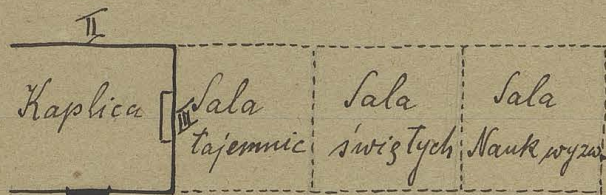 II
Kaplica
III
Sala
tajemnic
Sala
świętych
Sala
Nauk wyzw.